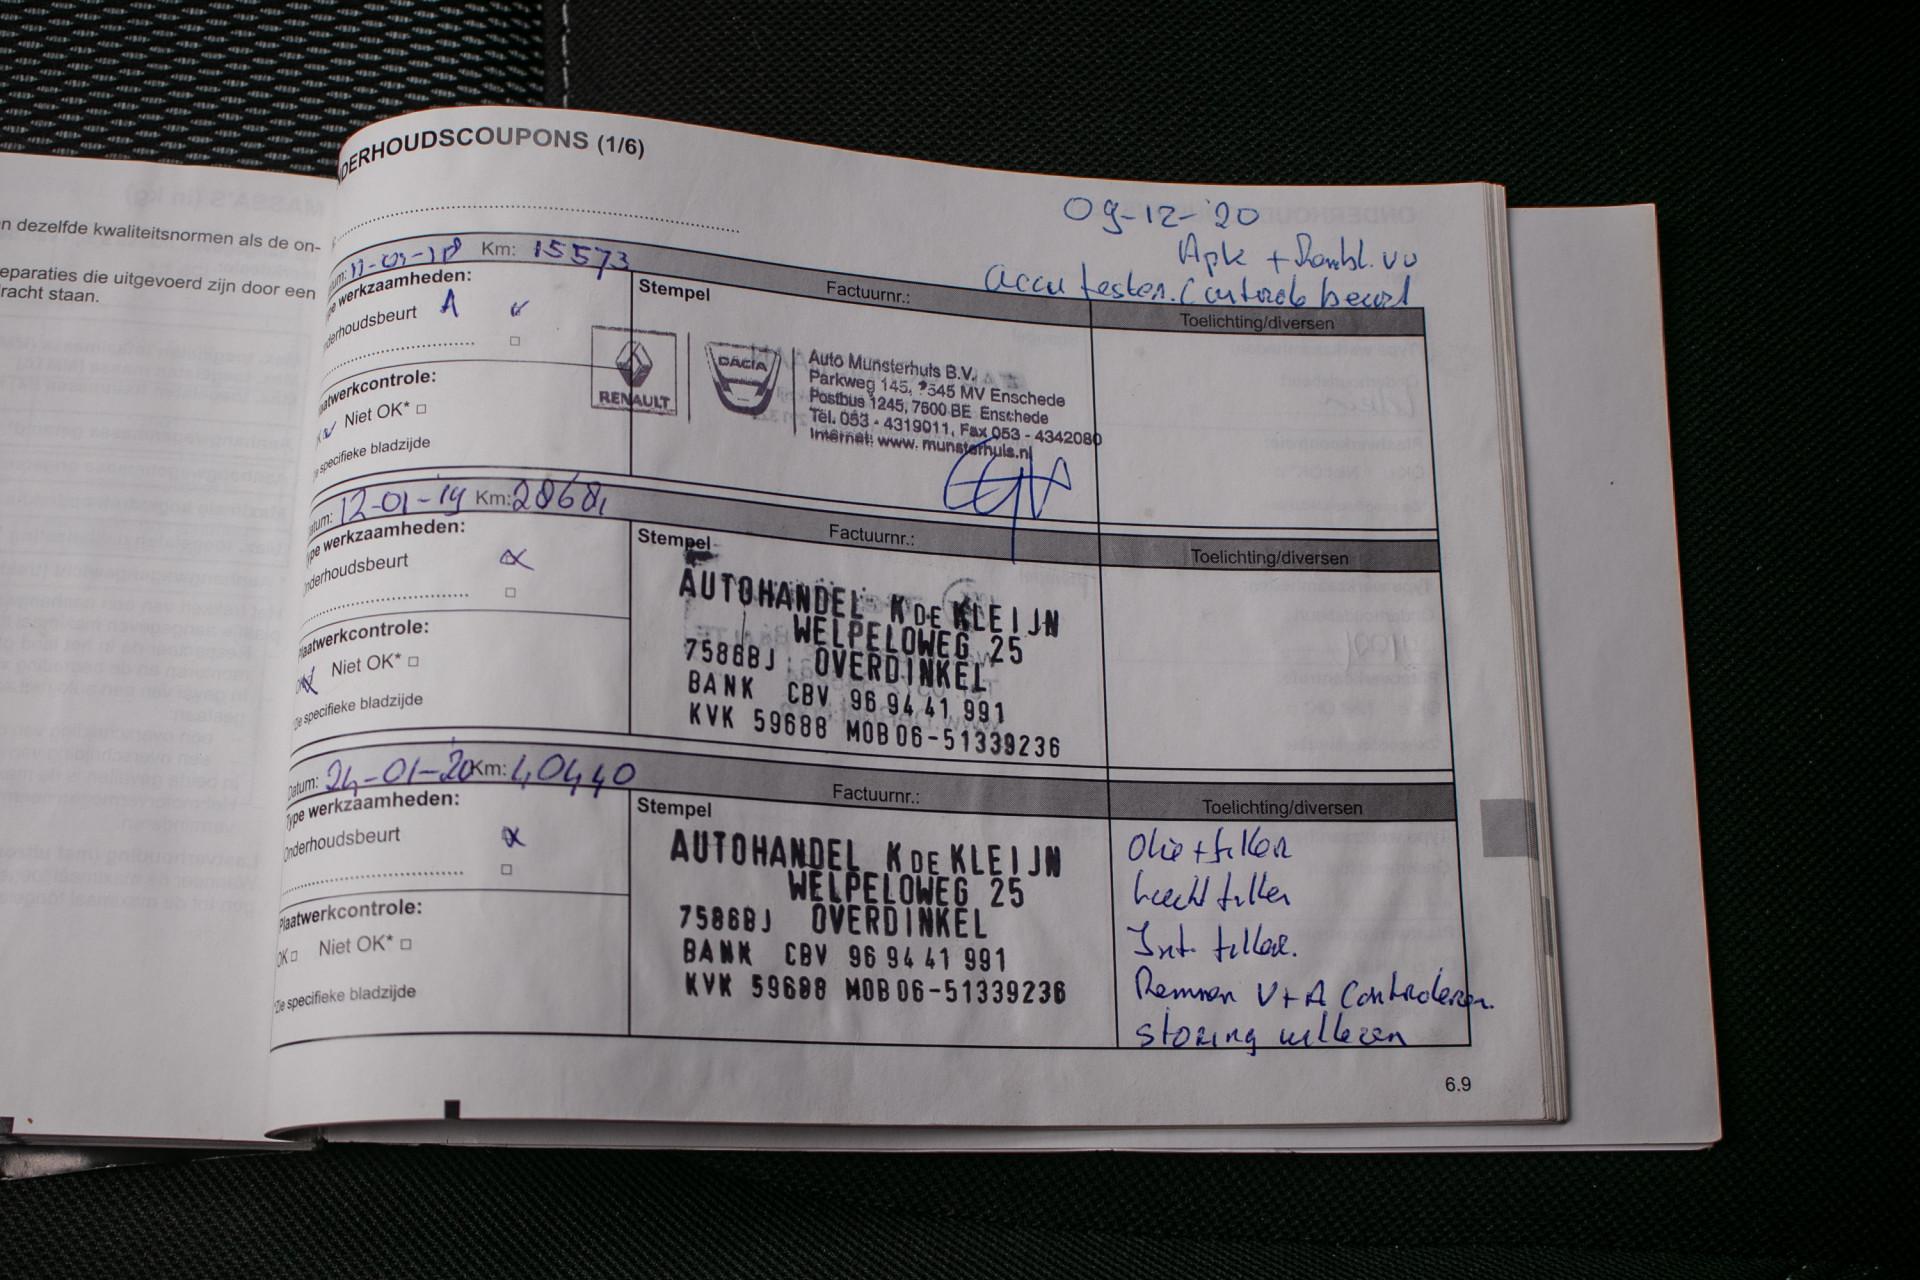 n dezelfde kwaliteitsnormen als de on-
eparaties die uitgevoerd zijn door een
racht staan.
DERHOUDSCOUPONS (1/6)
09-12-'20
Apk +
accu testen. Controle beurt
Km: 15573
ype werkzaamheden:
nderhoudsbeurt A
aatwerkcontrole:
Niet OK*
e specifieke bladzijde
Stempel
Factuurnr.:
Toelichting/diversen
RENAULT
DACIA
Auto Munsterhuis B.V.
Parkweg 145, 7545 MV Enschede
Postbus 1245, 7500 BE Enschede
Tel. 053 - 4319011, Fax 053 - 4342080
Internet: www. munsterhuis.nl
atum: 12-01-'19 Km: 28681
ype werkzaamheden:
nderhoudsbeurt
laatwerkcontrole:
OK Niet OK*
Zie specifieke bladzijde
Stempel
Factuurnr.:
Toelichting/diversen
AUTOHANDEL K DE KLEIJN
WELPELOWEG 25
7586BJ OVERDINKEL
BANK CBV 96 94 41 991
KVK 59688 MOB 06-51339236
Datum: 24-01-'20 Km: 40440
Type werkzaamheden:
Onderhoudsbeurt
Plaatwerkcontrole:
OK Niet OK*
*Zie specifieke bladzijde
Stempel
Factuurnr.:
Toelichting/diversen
AUTOHANDEL K DE KLEIJN
WELPELOWEG 25
7586BJ OVERDINKEL
BANK CBV 96 94 41 991
KVK 59688 MOB 06-51339236
Olie + filter
Lucht filter
Int. filter.
Remmen V+A Controleren.
storing uitlezen
6.9